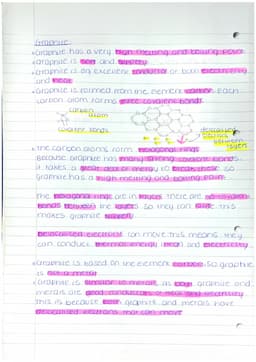 Graphite
• Graphite has a very high melting and boiling point
• Graphite is soft and slippery
• Graphite is an excellent conductor of both electricity
and heat
• Graphite is formed from the element carbon. Each
carbon atom forms three covalent bonds.
carbon
atom
covalent bonds
delocalised
electrons
between
layers
• The carbon atoms form hexagonal rings
Because graphite has many strong covalent bonds,
it takes a great deal of energy to break these so
graphite has a high melting and boiling point
The hexagonal rings are in layers. There are no covalent
bonds between the layers so they can slide this
makes graphite slippery
Delocalised electrons can move this means they
can conduct thermal energy (heat) and electricity
• Graphite is based on the element carbon, so graphite
is not a metal
• Graphite is similar to metals, as both graphite and
metals are good conductors of heat and electricity
this is because both graphite and metals have
delocalised electrons that can move